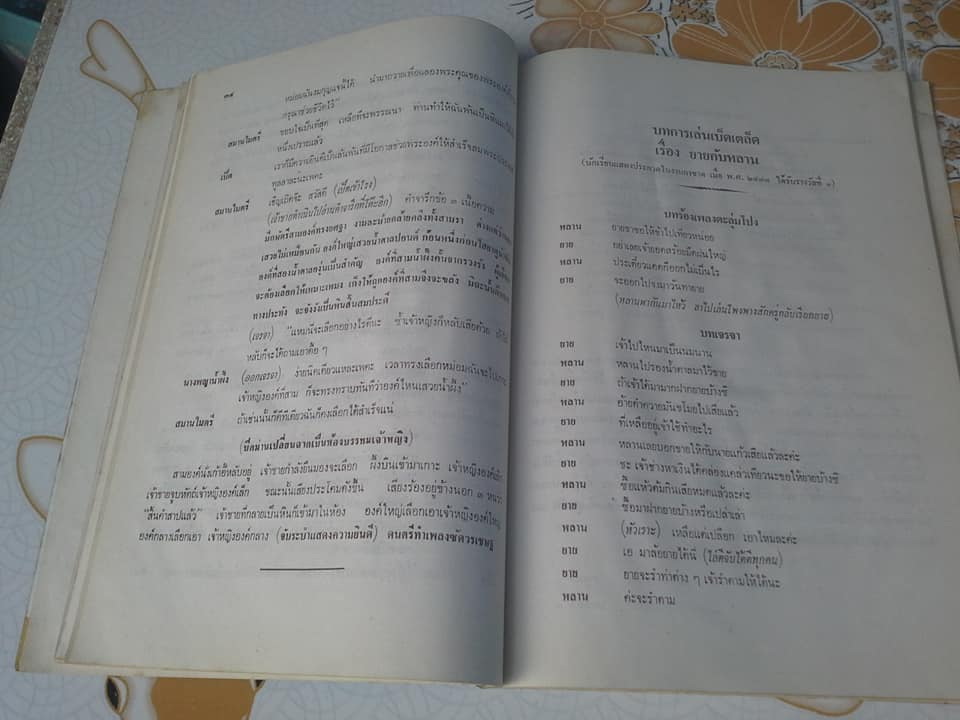 ๓๔
หม่อมฉันงมกุญแจนี้ได้ นำมาถวายเพื่อฉลองพระคุณของพระองค์ที่
กรุณาช่วยชีวิตไว้"
สมานไมตรี ขอบใจเป็นที่สุด เหลือที่จะพรรณนา ท่านทำให้ฉันพ้นเป็นหิน
หนึ่งปราชแล้ว
เป็ด เราก็มีความยินดีเป็นล้นพ้นที่มีโอกาสช่วยพระองค์ให้สำเร็จสมพระ
ทูลลาละนะเพคะ
สมานไมตรี เชิญเถิดจ้ะ สวัสดี (เป็ดเข้าโรง)
(เจ้าชายดำเนินไปอ่านคำจารึกที่โต๊ะอีก) คำจารึกข้อ ๓ เนื้อความ
มีกษัตริย์สามองค์ทรงยศฐา งามละม้ายคล้ายคลึงทั้งสามรา ต่างแต่
เสวยไม่เหมือนกัน องค์ใหญ่เสวยน้ำตาลปอนด์ ก้อนหนึ่งก่อนไสยาสน์
องค์ที่สองน้ำตาลองุ่นเป็นสำคัญ องค์ที่สามน้ำผึ้งคั้นจากรวงรัง
จะต้องเลือกให้เหมาะเหมง เพ็งให้ถูกองค์ที่สามจึงจะขลัง มิฉะนั้น
ทางประทัง จะยังงันเป็นหินสิ้นสมประดี
(เจรจา) "แหมนี่จะเลือกอย่างไรดีนะ ซ้ำเจ้าหญิงก็หลับเสียด้วย
หลับก็จะได้ถามเอาดื้อ ๆ
นางพญาน้ำผึ้ง (ออกเจรจา) ง่ายนิดเดียวแหละเพคะ เวลาทรงเลือกหม่อมฉันจะไปเกาะ
เจ้าหญิงองค์ที่สาม ก็จะทรงทราบทันทีว่าองค์ไหนเสวยน้ำผึ้ง"
สมานไมตรี ถ้าเช่นนั้นก็ดีทีเดียวฉันก็คงเลือกได้สำเร็จแน่
(ปิดม่านเปลี่ยนฉากเป็นห้องบรรทมเจ้าหญิง)
สามองค์นั่งเก้าอี้หลับอยู่ เจ้าชายกำลังยืนมองจะเลือก ผึ้งบินเข้ามาเกาะ เจ้าหญิงองค์เล็ก
เจ้าชายจูบหัตถ์เจ้าหญิงองค์เล็ก ขณะนั้นเสียงประโคมดังขึ้น เสียงร้องอยู่ข้างนอก ๓ หน
"สิ้นคำสาปแล้ว" เจ้าชายที่กลายเป็นหินก็เข้ามาในห้อง องค์ใหญ่เลือกเอาเจ้าหญิงองค์ใหญ่
องค์กลางเลือกเอา เจ้าหญิงองค์กลาง (จับระบำแสดงความยินดี) ดนตรีทำเพลงซัดวรเชษฐ์
บทการเล่นเบ็ดเตล็ด
เรื่อง ยายกับหลาน
(นักเรียนแสดงประกวดในงานกาชาด เมื่อ พ.ศ. ๒๔๗๗ ได้รับรางวัลที่ ๑)
บทร้องเพลงตะลุ่มโปง
หลาน ยายขาขอให้ข้าไปเที่ยวหน่อย
ยาย อย่าเลยเจ้ายอดสร้อยมีฝนใหญ่
หลาน ประเดี๋ยวแดดก็ออกไม่เป็นไร
ยาย จะออกไปจงมาวันทายาย
(หลานพากันมาไหว้ ลาไปเล่นโพงพางสักครู่กลับเรียกยาย)
บทเจรจา
ยาย เจ้าไปไหนมาเป็นนมนาน
หลาน หลานไปรองน้ำตาลมาไว้ขาย
ยาย ถ้าเจ้าได้มามากฝากยายบ้างซิ
หลาน อ้ายดำควายมันขโมยไปเสียแล้ว
ยาย ที่เหลืออยู่เจ้าใช้ทำอะไร
หลาน หลานเลยบอกขายให้กับนายแก้วเสียแล้วล่ะค่ะ
ยาย ชะ เจ้าช่างหาเงินได้คล่องแคล่วเทียวนะขอให้ยายบ้างซิ
หลาน ซื้อแห้วต้มกินเสียหมดแล้วล่ะค่ะ
ยาย ซื้อมาฝากยายบ้างหรือเปล่าเล่า
หลาน (หัวเราะ) เหลือแต่เปลือก เอาไหมล่ะค่ะ
ยาย เอ มาล้อยายได้นี่ (ไล่ตีจับได้ตีทุกคน)
ยาย ยายจะรำท่าต่าง ๆ เจ้ารำตามให้ได้นะ
หลาน ค่ะจะรำตาม